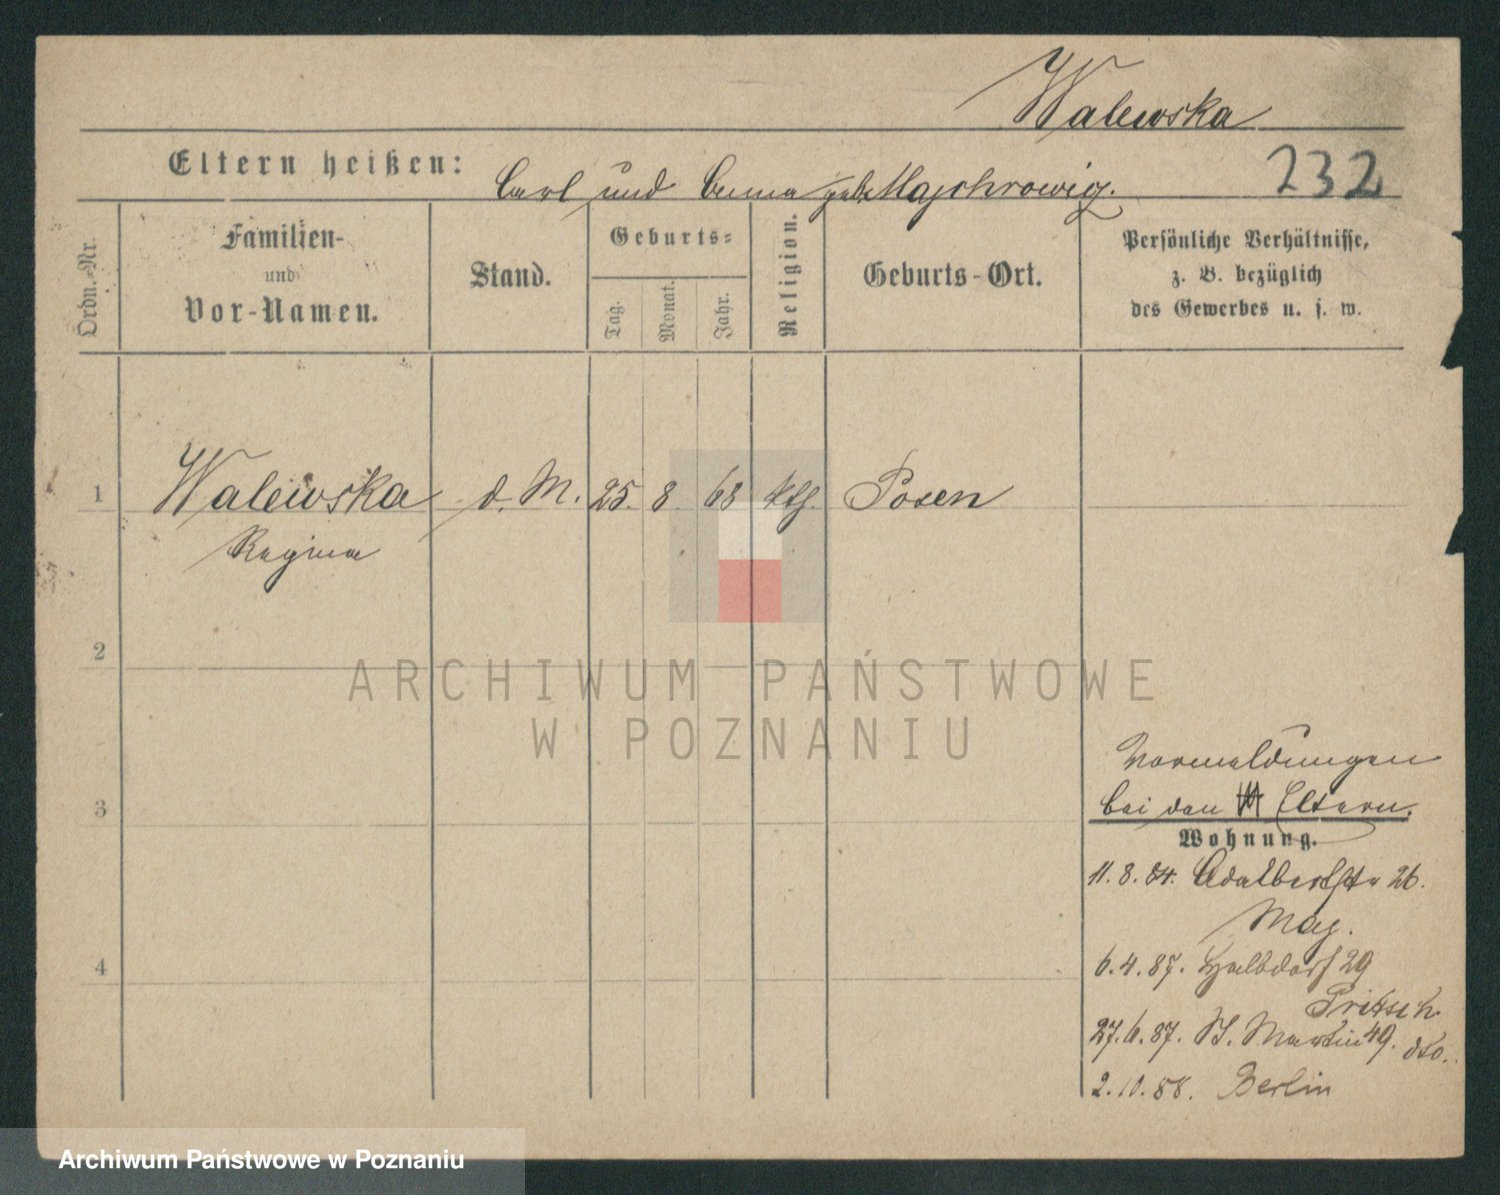 Walewska
Eltern heißen: Carl und Emma geb. Majchrowicz.
232
Ordn.-Nr.
Familien-
und
Vor-Namen.
Stand.
Geburts-
Tag.
Monat.
Jahr.
Religion.
Geburts-Ort.
Persönliche Verhältnisse,
z. B. bezüglich
des Gewerbes u. s. w.
1 Walewska d. M. 25. 8 68 kth. Posen
Regina
2
ARCHIWUM PAŃSTWOWE
W POZNANIU
Vormeldungen
bei den Eltern.
3
Wohnung.
11. 8. 84. Adalbertstr 26.
Mag.
4
6. 4. 87. Halbdorf 29
Pritsch.
27. 6. 87. St. Martin 49. dto.
2. 10. 88. Berlin
Archiwum Państwowe w Poznaniu